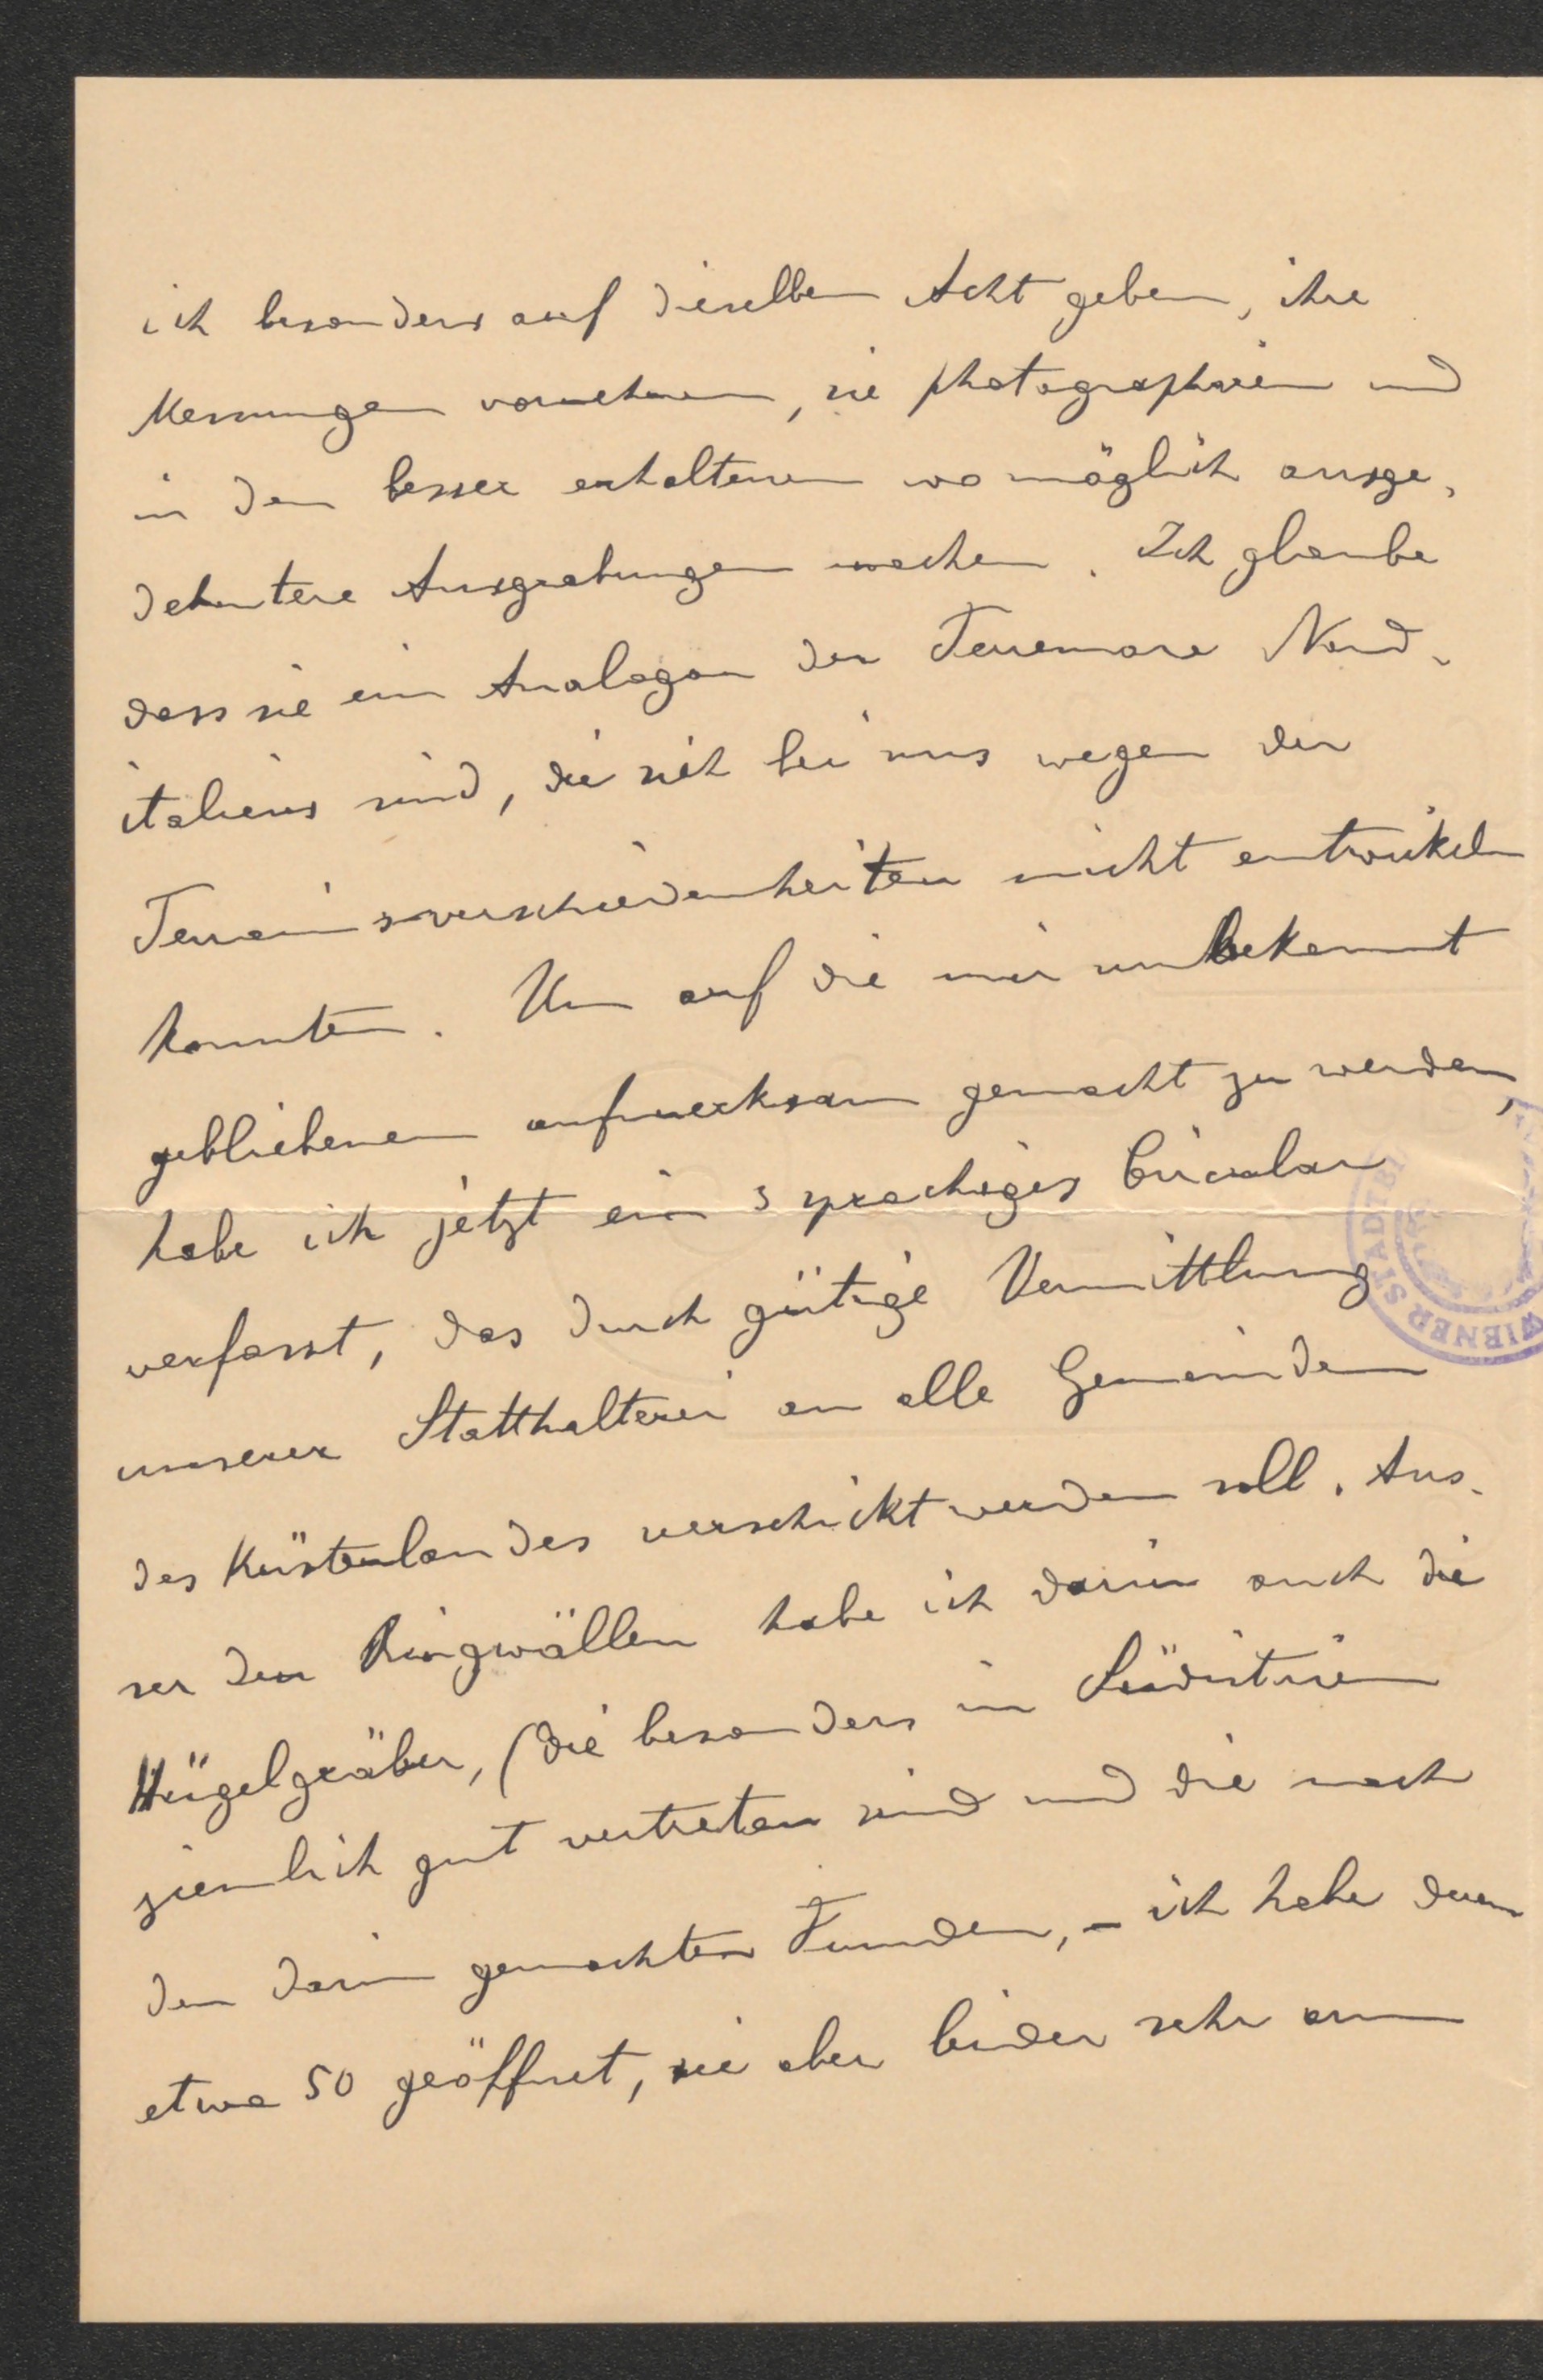 ich besonders auf dieselben Acht geben, ihre
Messungen vornehmen, sie photographiren und
in den besser erhaltenen wo möglich ausge-
dehntere Ausgrabungen machen. Ich glaube
dass sie ein Analogon der Terremare Nord-
italiens sind, die sich bei uns wegen der
Terrainsverschiedenheiten nicht entwickeln
konnten. Um auf die mir unbekannt
gebliebenen aufmerksam gemacht zu werden,
habe ich jetzt ein 3 sprachiges Circular
verfasst, das durch gütige Vermittlung
unserer Statthalterei an alle Gemeinden
des Küstenlandes verschickt werden soll. Aus-
ser den Ringwällen habe ich darin auch die
Hügelgräber, (die besonders in Südistrien
ziemlich gut vertreten sind und die nach
den darin gemachten Funden, – ich habe deren
etwa 50 geöffnet, sie aber leider sehr arm
WIENER STADTBI